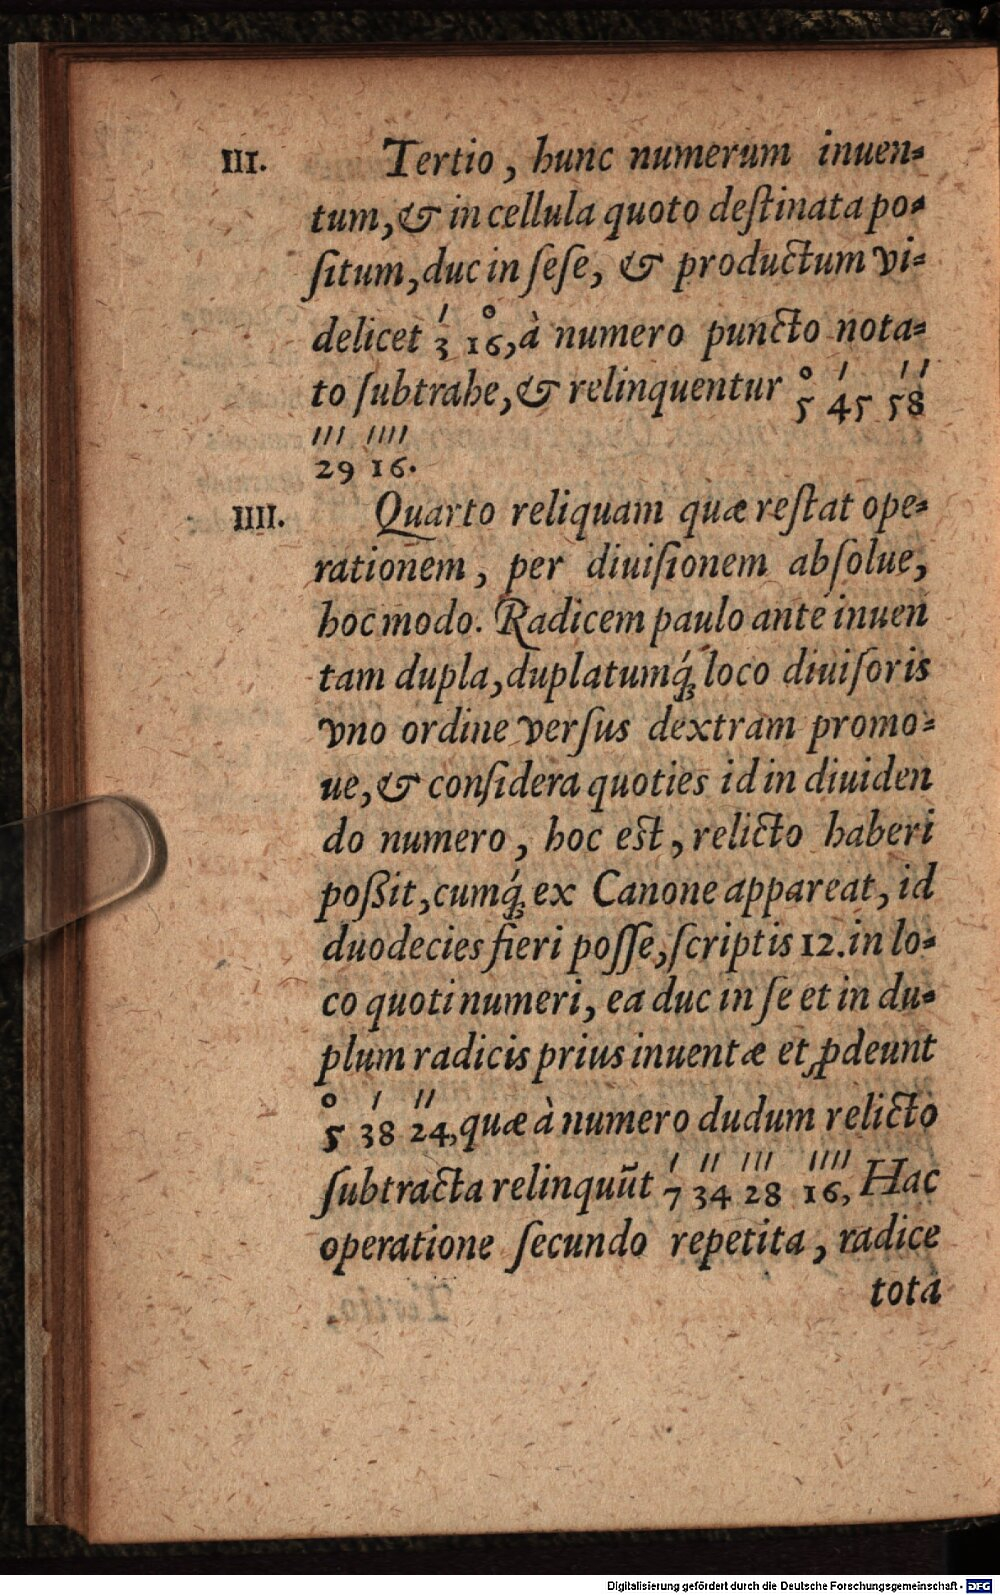 III. Tertio, hunc numerum inuen⸗
tum, & in cellula quoto deſtinata po⸗
ſitum, duc in ſeſe, & productum vi⸗
′ o
delicet 3 16, à numero puncto nota⸗
o ′ ′′
to ſubtrahe, & relinquentur 5 45 58
′′′ ′′′′
29 16.
IIII. Quarto reliquam quæ reſtat ope⸗
rationem, per diuiſionem abſolue,
hoc modo. Radicem paulo ante inuen
tam dupla, duplatumq́; loco diuiſoris
vno ordine verſus dextram promo⸗
ue, & conſidera quoties id in diuiden
do numero, hoc eſt, relicto haberi
poßit, cumq́; ex Canone appareat, id
duodecies fieri poſſe, ſcriptis 12. in lo⸗
co quoti numeri, ea duc in ſe et in du⸗
plum radicis prius inuentæ et ꝓdeunt
o ′ ′′
5 38 24, quæ à numero dudum relicto
′ ′′ ′′′ ′′′′
ſubtracta relinquūt 7 34 28 16, Hac
operatione ſecundo repetita, radice
tota
Digitalisierung gefördert durch die Deutsche Forschungsgemeinschaft - DFG